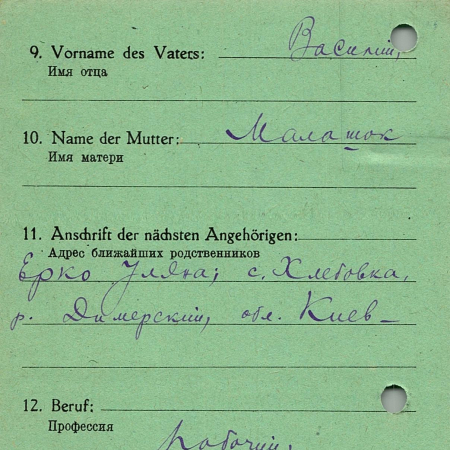 9. Vorname des Vaters: Василий,
Имя отца
10. Name der Mutter: Малашок
Имя матери
11. Anschrift der nächsten Angehörigen:
Адрес ближайших родственников
Ерко Уляна; с. Хлебовка,
р. Димерский, обл. Киев-
12. Beruf:
Профессия
Рабочий,